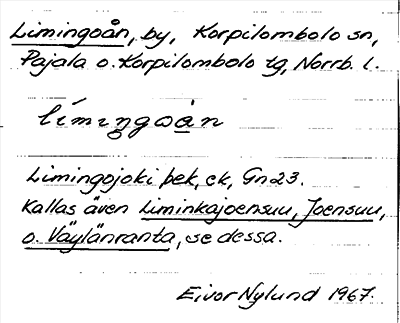 Limingoån, by, Korpilombolo sn,
Pajala o. Korpilombolo tg, Norrb. l.
límiŋgoàn
Limingojoki bek, ek, Gn23.
Kallas även Liminkajoensuu, Joensuu,
o. Väylänranta, se dessa.
Eivor Nylund 1967.